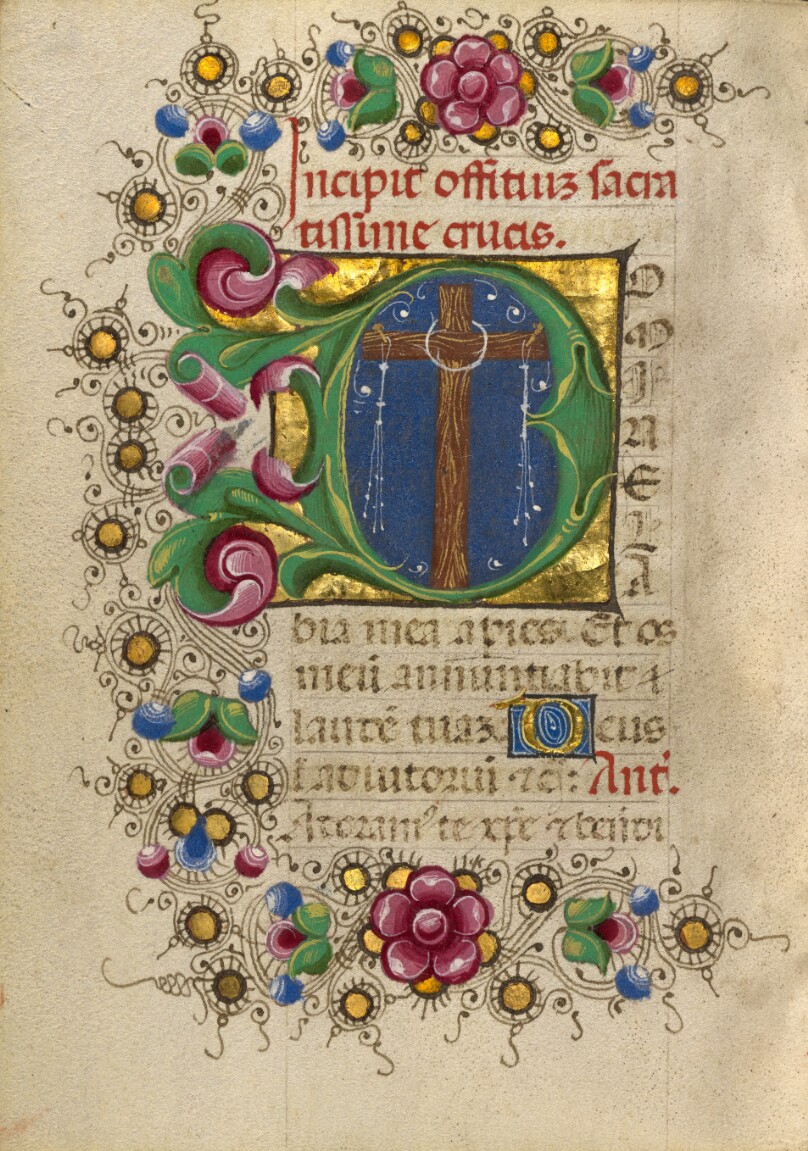 Incipit offitiuz sacra
tissime crucis.
D
O
M
I
N
E
L
A
bia mea apries. Et os
meū annuntiabit
laudē tuaz. Deus
ī adiutoriū ⁊c: Ant̄.
Adoram' te xp̄e ⁊ bn̄di